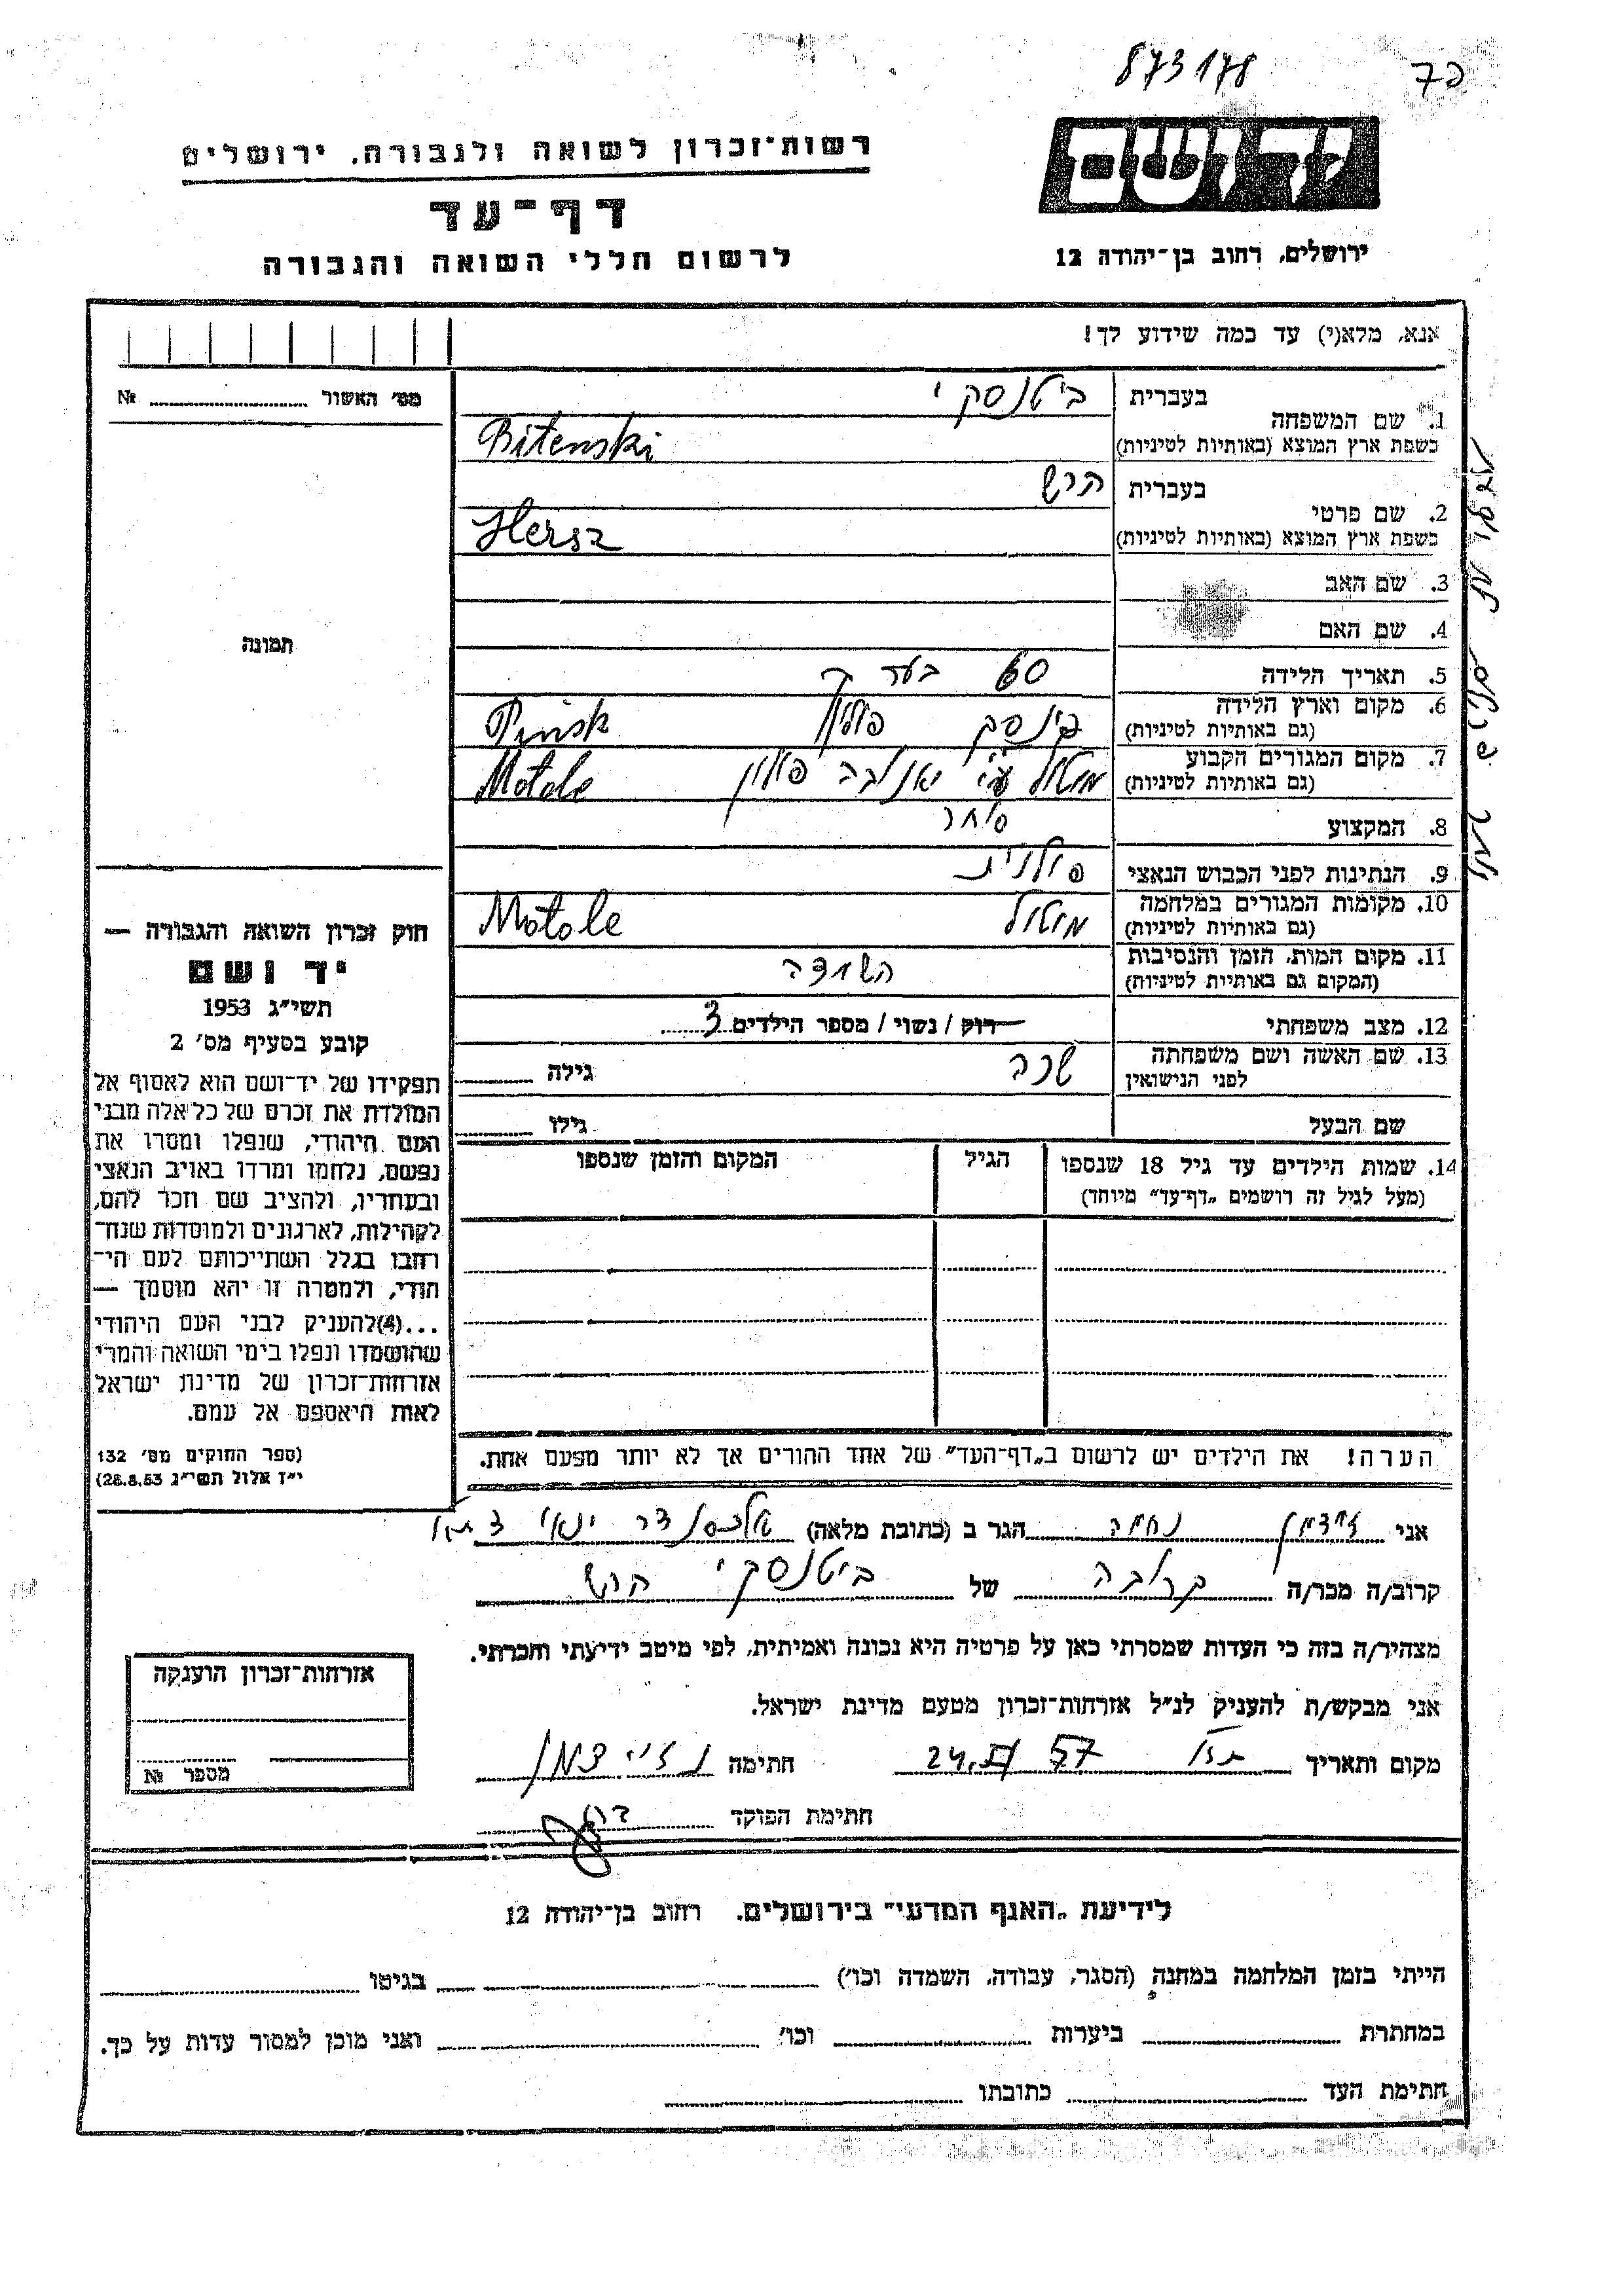 873178
רשות־זכרון לשואה ולגבורה, ירושלים
יד ושם
דף־עד
לרשום חללי השואה והגבורה
ירושלים, רחוב בן־יהודה 12
אנא, מלא(י) עד כמה שידוע לך!
מס׳ האשור № 
1. שם המשפחה
בעברית ביטנסקי
בשפת ארץ המוצא (באותיות לטיניות) Bitenski
2. שם פרטי
בעברית הרש
בשפת ארץ המוצא (באותיות לטיניות) Hersz
3. שם האב
4. שם האם
תמונה
5. תאריך הלידה 60 בערך
6. מקום וארץ הלידה (גם באותיות לטיניות) פינסק פולין Pinsk
7. מקום המגורים הקבוע (גם באותיות לטיניות) מוטול ע״י יאנובה פולין Motole
8. המקצוע סוחר
9. הנתינות לפני הכבוש הנאצי פולנית
10. מקומות המגורים במלחמה (גם באותיות לטיניות) מוטול Motole
11. מקום המות, הזמן והנסיבות (המקום גם באותיות לטיניות) השמדה
12. מצב משפחתי רוק / נשוי / מספר הילדים 3
13. שם האשה ושם משפחתה לפני הנישואין שרה גילה
שם הבעל גילו
14. שמות הילדים עד גיל 18 שנספו
(מעל לגיל זה רושמים „דף־עד” מיוחד)
הגיל
המקום והזמן שנספו
חוק זכרון השואה והגבורה —
יד ושם
תשי״ג 1953
קובע בסעיף מס׳ 2
תפקידו של יד־ושם הוא לאסוף אל
המולדת את זכרם של כל אלה מבני
העם היהודי, שנפלו ומסרו את
נפשם, נלחמו ומרדו באויב הנאצי
ובעוזריו, ולהציב שם וזכר להם,
לקהילות, לארגונים ולמוסדות שנח־
רבו בגלל השתייכותם לעם הי־
הודי, ולמטרה זו יהא מוסמך —
...(4)להעניק לבני העם היהודי
שהושמדו ונפלו בימי השואה והמרי
אזרחות־זכרון של מדינת ישראל
לאות היאספם אל עמם.
(ספר החוקים מס׳ 132
י״ז אלול תשי״ג 28.8.53)
הערה! את הילדים יש לרשום ב„דף־העד” של אחד ההורים אך לא יותר מפעם אחת.
אני זידמן נחמה הגר ב (כתובת מלאה) אלכסנדר ינאי
קרוב/ה מכר/ה קרובה של ביטנסקי הרש
מצהיר/ה בזה כי העדות שמסרתי כאן על פרטיה היא נכונה ואמיתית, לפי מיטב ידיעתי והכרתי.
אני מבקש/ת להעניק לנ״ל אזרחות־זכרון מטעם מדינת ישראל.
מקום ותאריך 57 24. חתימה נ. זידמן
חתימת הפוקד
אזרחות־זכרון הוענקה
מספר №
לידיעת „האגף המדעי” בירושלים. רחוב בן־יהודה 12
הייתי בזמן המלחמה במחנה (הסגר, עבודה, השמדה וכו׳) בגיטו
במחתרת ביערות וכו׳ ואני מוכן למסור עדות על כך.
חתימת העד כתובתו